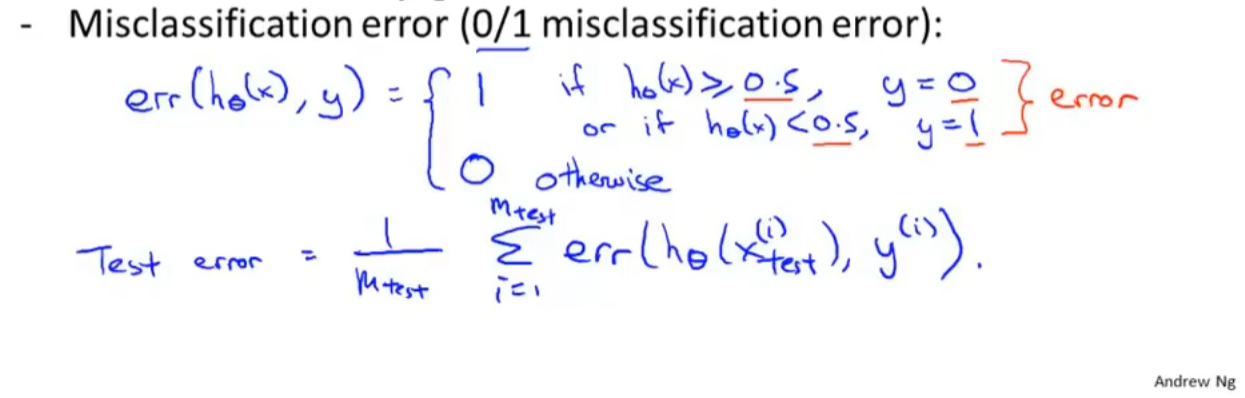 - Misclassification error (0/1 misclassification error):
err(hθ(x), y) = { 1 if hθ(x) ≥ 0.5, y = 0 } error
or if hθ(x) < 0.5, y = 1
0 otherwise
Test error = 1/mtest Σ_{i=1}^{mtest} err(hθ(x_test^(i)), y^(i)).
Andrew Ng